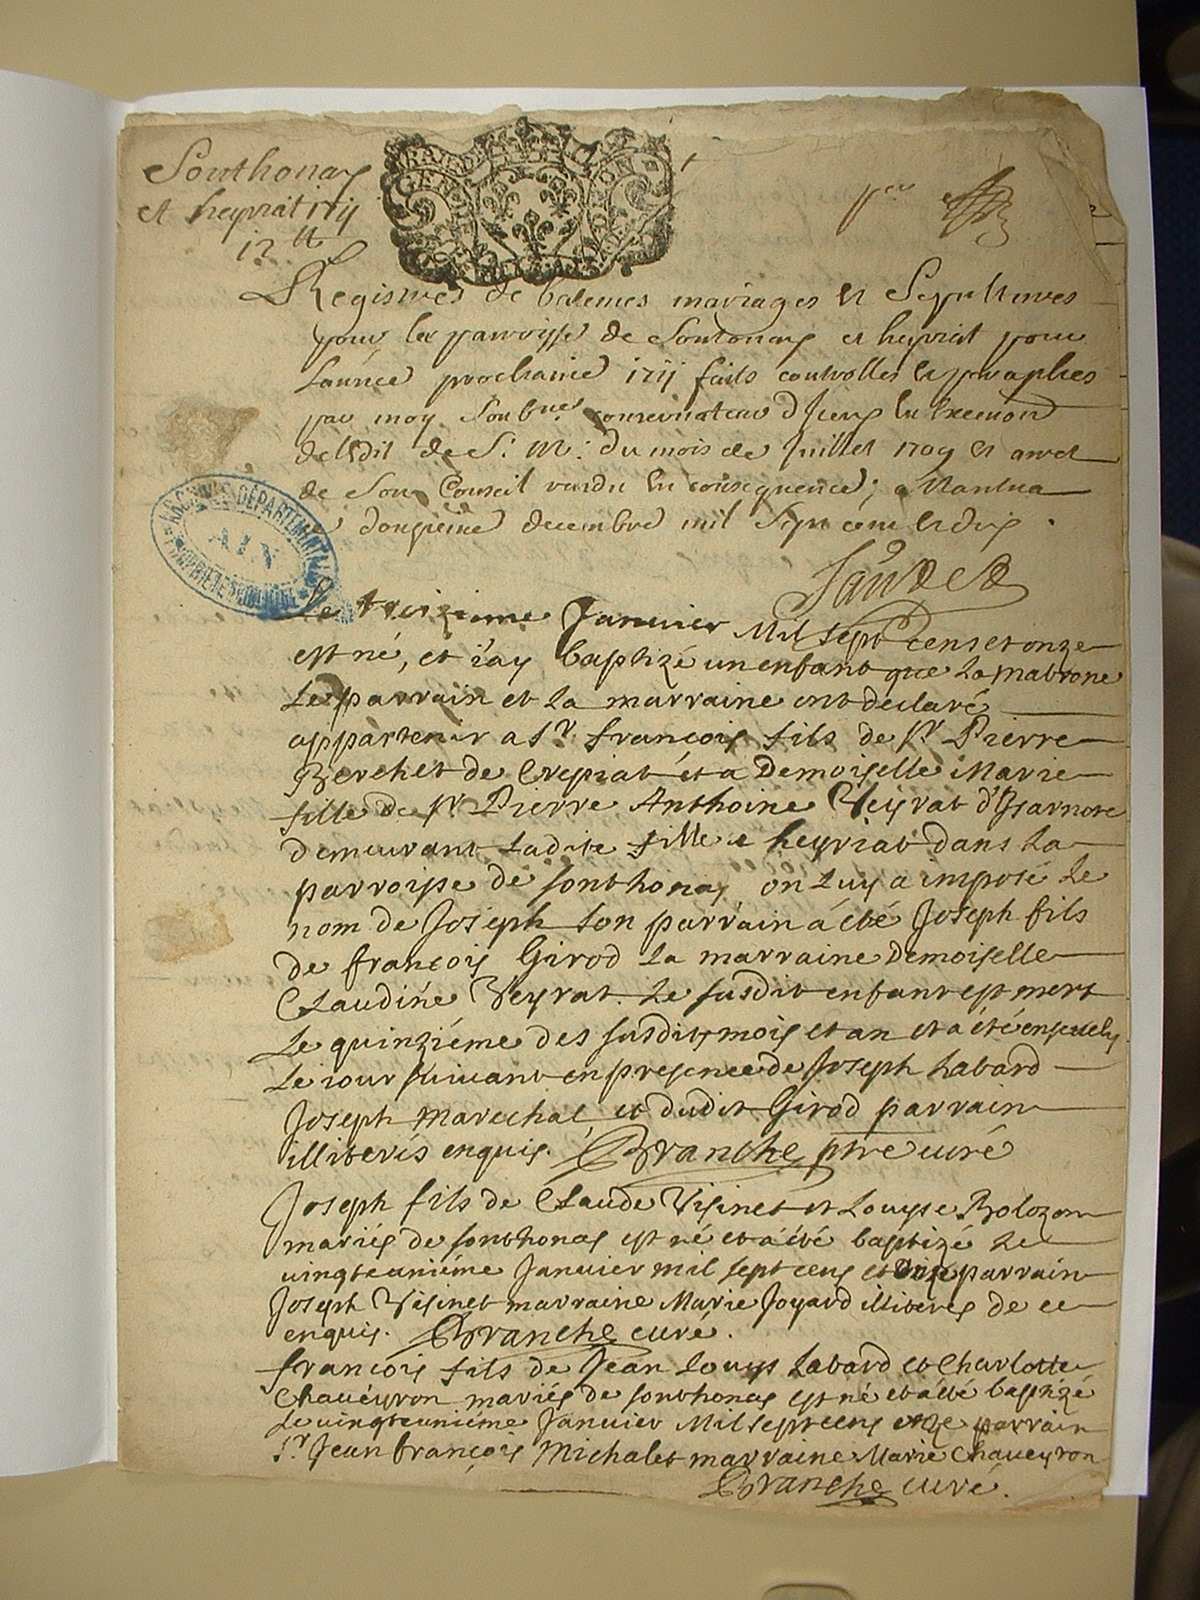 Sonthonay
et heyriat 1711
12
GEN
Registres de batemes mariages et Sepultures
pour les parroisse de Sontonay et heyriat pour
Lannée prochaine 1711 faits controlles et paraphes
par moy Soub.né conservateur d'Iceux En Execution
de lEdit de S. M. du mois de Juillet 1709 et arret
de Son Conseil rendu En consequence; a Nantua
ce douzieme decembre mil Sept cent et dix.
Le treizieme Janvier Mil sept cens et onze
est né, et i'ay baptizé un enfant que la matrone
Le parrain et La marraine ont declaré
appartenir a Sr. françois fils de Sr Pierre
Berchet de Crepiat et a Demoiselle Marie
fille de Sr Pierre Anthoine Veyrat d'Isarnore
demeurant Ladite fille a heyriat dans La
parroisse de sonthonay on Luy a imposé Le
nom de Joseph son parrain à été Joseph fils
de françois Girod La marraine Demoiselle
Claudine Veyrat. Le susdit enfant est mort
Le quinziéme des susdits mois et an et a été ensevely
Le iour suivant en presence de Joseph Labard
Joseph Marechal et dudit Girod parrain
illiterés enquis. Branche ptre curé
Joseph fils de Claude Visinet et Louyse Bolozon
mariés de sonthonas est né et a été baptizé Le
vingteunième Janvier mil sept cens et onze parrain
Joseph Visinet marraine Marie Joyard illiterés de ce
enquis. Branche curé.
françois fils de Jean Louys Labard et Charlotte
Chaveyron mariés de sonthonas est né et a été baptizé
Le vingteunième Janvier Mil sept cens onze parrain
Sr Jean françois Michalet marraine Marie Chaveyron
Branche curé.
ARCHIVES DÉPARTEMENTALES
AIN
PROPRIÉTÉ PUBLIQUE